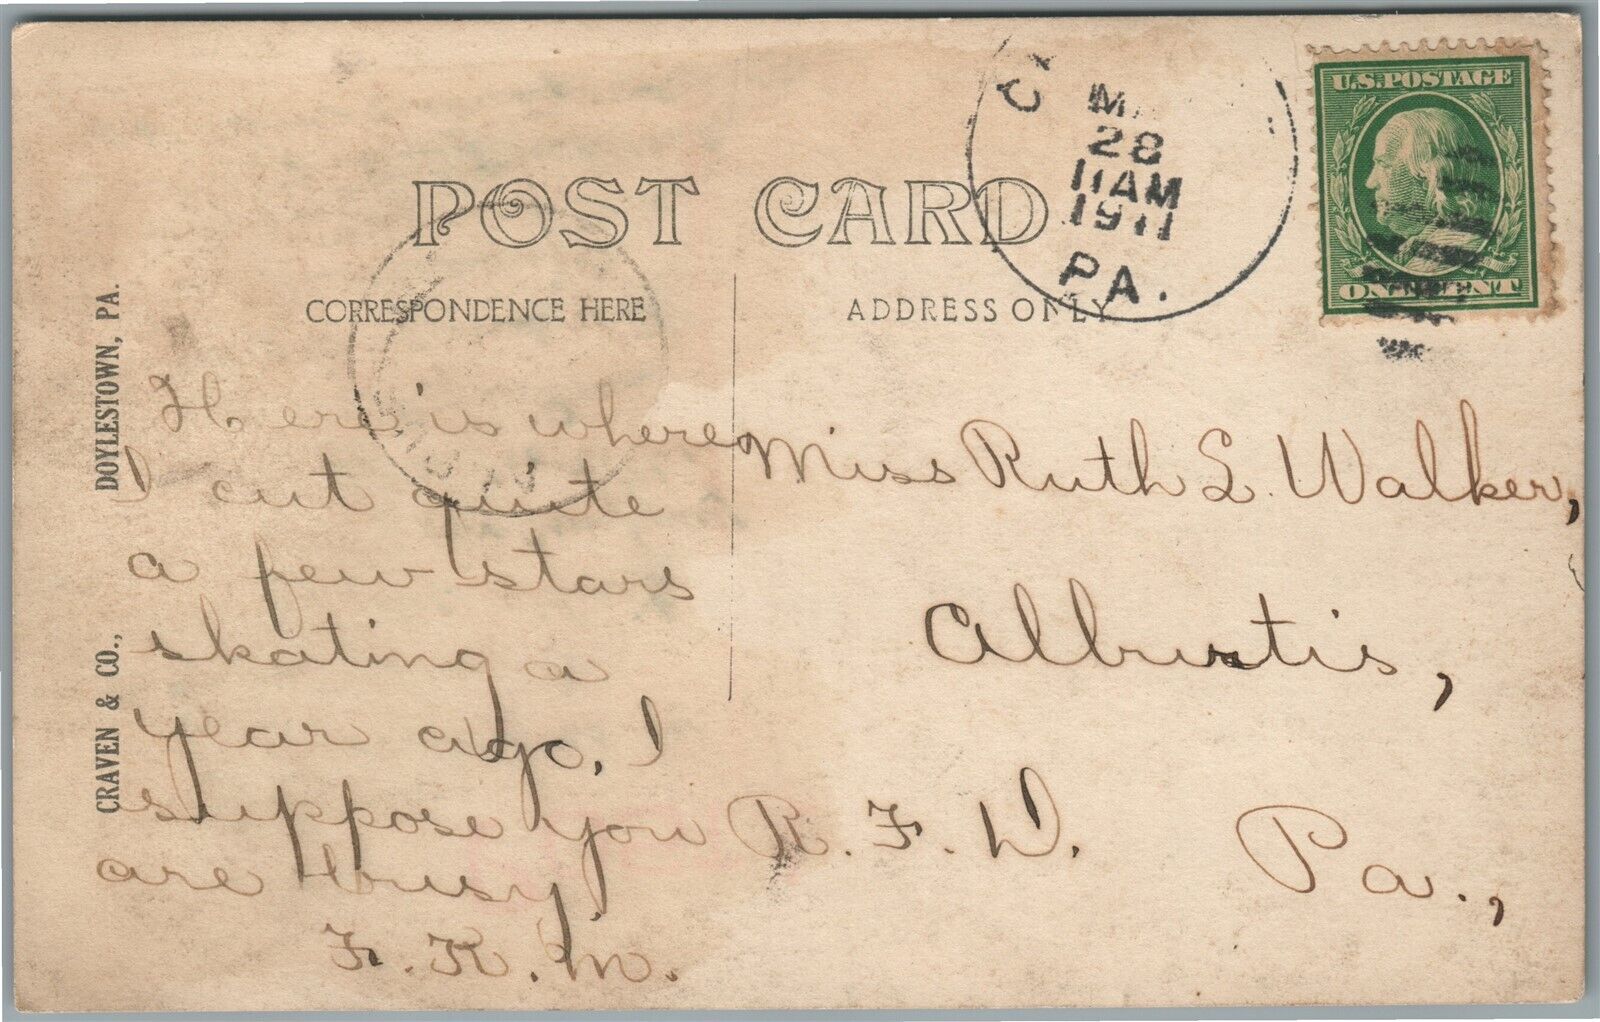 U.S. POSTAGE
ONE CENT
28
11AM
1911
PA.
POST CARD
CORRESPONDENCE HERE
ADDRESS ONLY
CRAVEN & CO., DOYLESTOWN, PA.
Here is where
I cut quite
a few stars
skating a
year ago, I
suppose you
are busy
F. K. M.
Miss Ruth L. Walker,
Alburtis,
R. F. D.
Pa.,